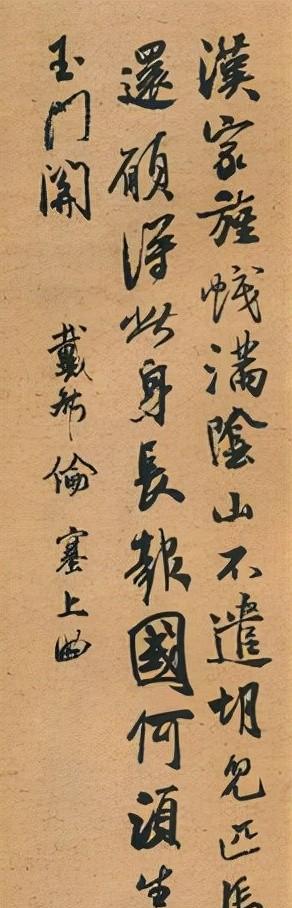 漢家旌幟滿陰山不遣胡兒匹馬
還願得此身長報國何須生
玉門關
戴叔倫 塞上曲